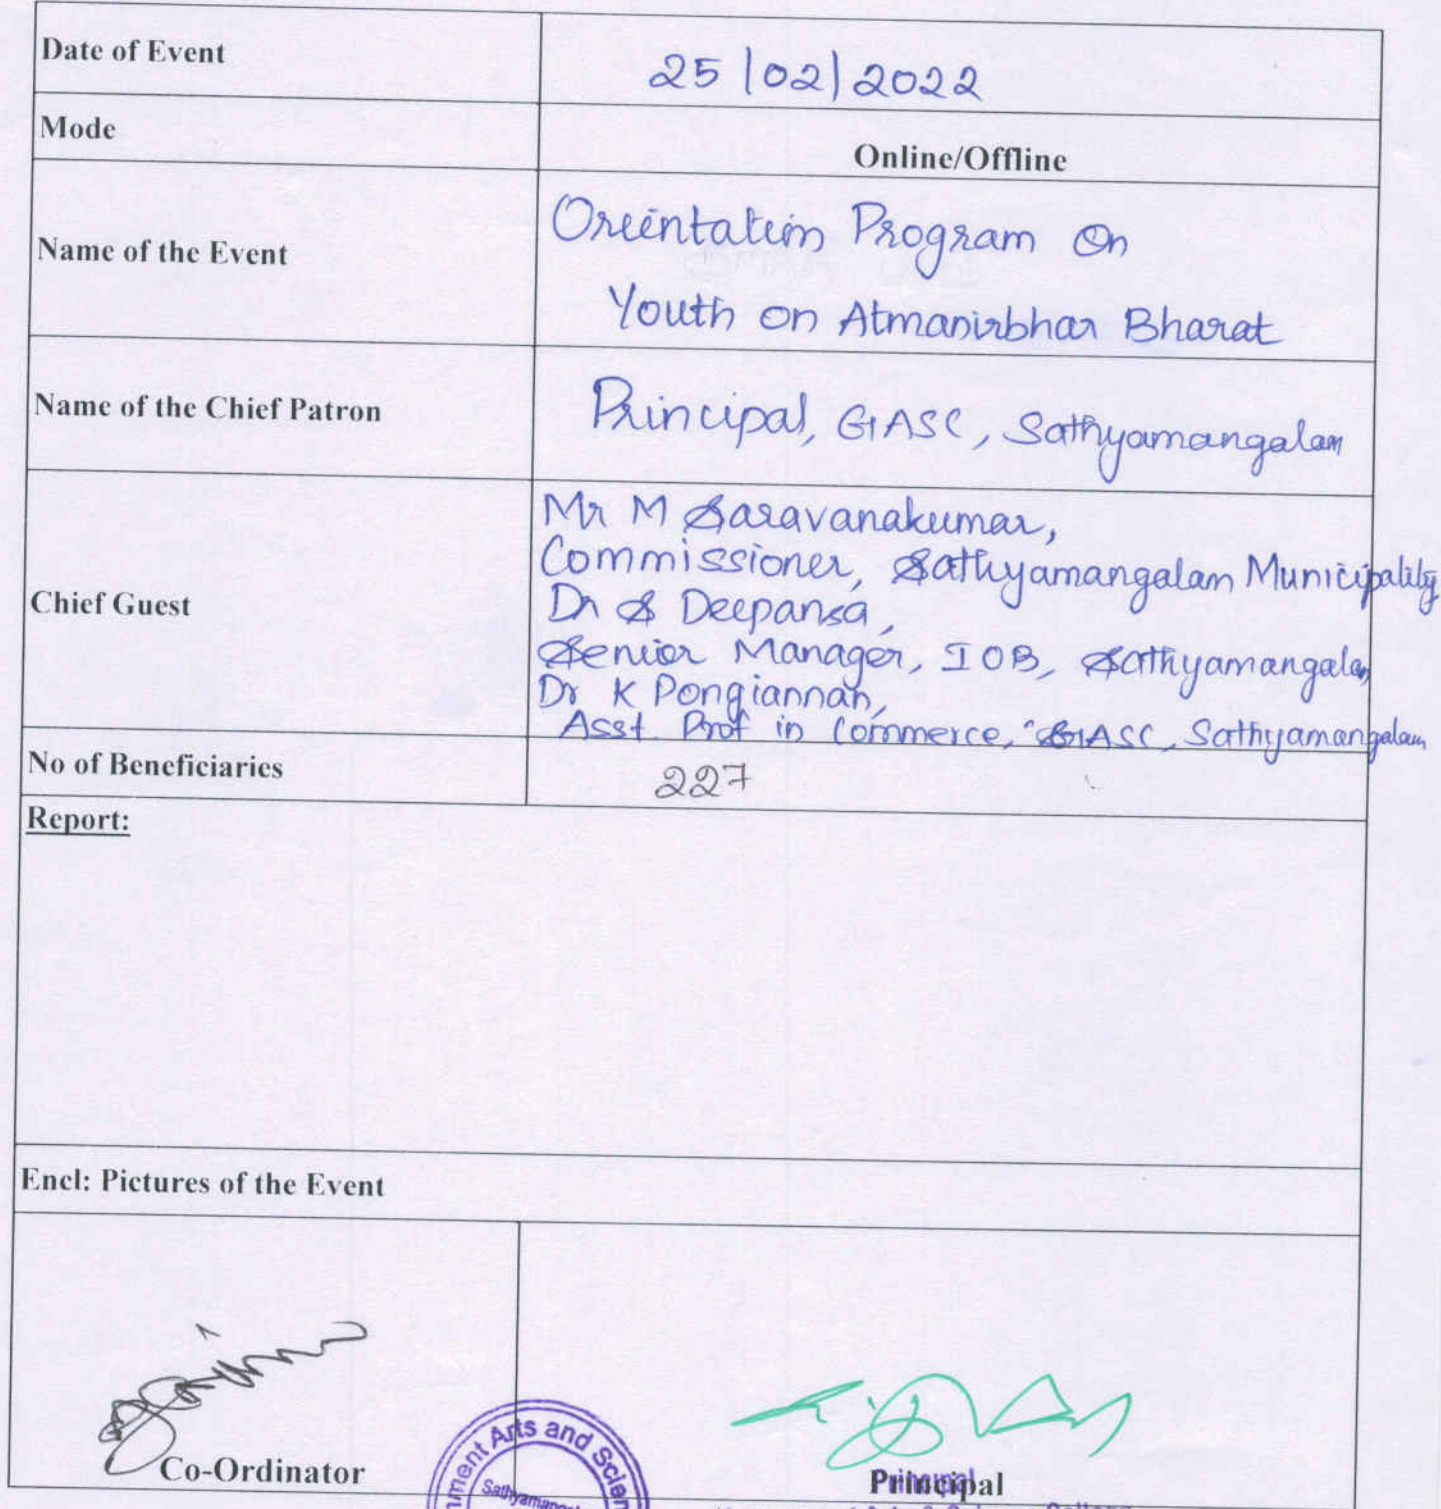 Date of Event
25/02/2022
Mode
Online/Offline
Name of the Event
Orientation Program On
Youth on Atmanirbhar Bharat
Name of the Chief Patron
Principal, GASC, Sathyamangalam
Chief Guest
Mr M Saravanakumar,
Commissioner, Sathyamangalam Municipality
Dr S Deepansa,
Senior Manager, IOB, Sathyamangalam
Dr K Pongiannan,
Asst. Prof in Commerce, GASC, Sathyamangalam
No of Beneficiaries
227
Report:
Encl: Pictures of the Event
Co-Ordinator
Arts and
Principal
Principal